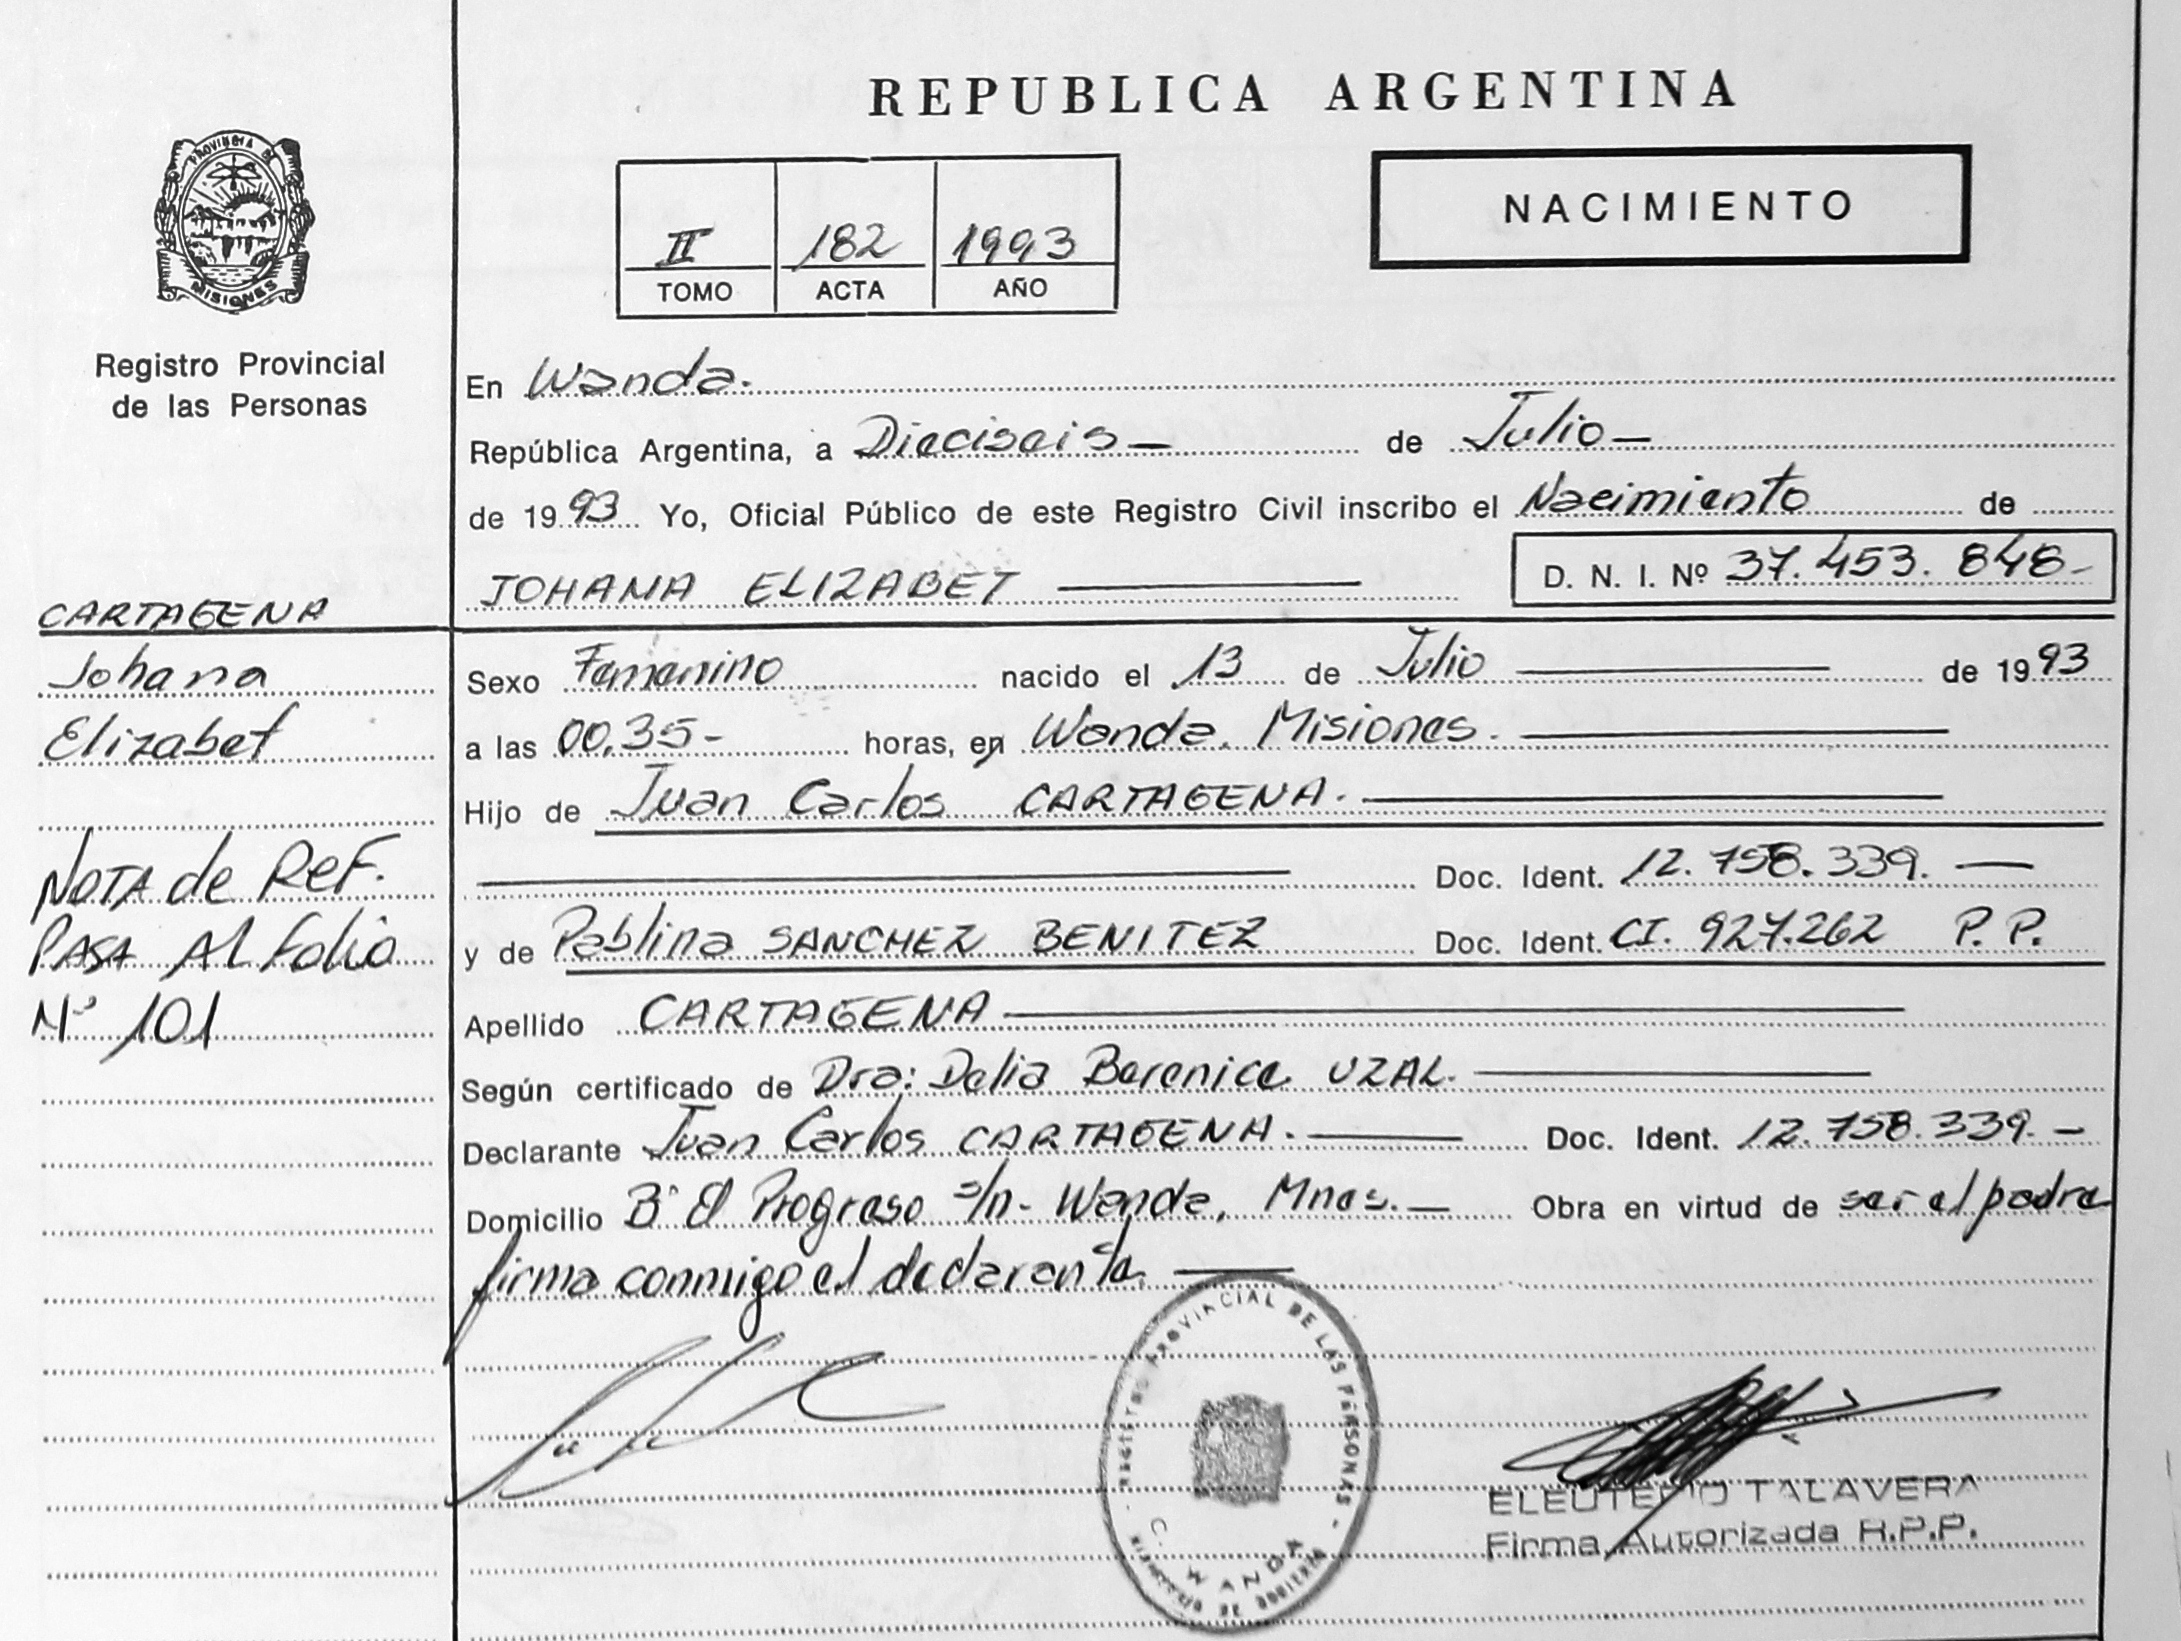 REPUBLICA ARGENTINA
PROVINCIA DE
MISIONES
Registro Provincial
de las Personas
II 182 1993
TOMO ACTA AÑO
NACIMIENTO
En Wanda.
República Argentina, a Dieciseis — de Julio —
de 1993 Yo, Oficial Público de este Registro Civil inscribo el Nacimiento de
JOHANA ELIZABET — D. N. I. Nº 37.453.848-
CARTAGENA
Johana
Elizabet
NOTA de REF.
PASA AL Folio
Nº 101
Sexo Femenino nacido el 13 de Julio — de 1993
a las 00,35- horas, en Wanda. Misiones. —
Hijo de Juan Carlos CARTAGENA. —
— Doc. Ident. 12.758.339. —
y de Pablina SANCHEZ BENITEZ Doc. Ident. CI. 927.262 P. P.
Apellido CARTAGENA —
Según certificado de Dra: Delia Berenice UZAL. —
Declarante Juan Carlos CARTAGENA. — Doc. Ident. 12.758.339. —
Domicilio Bº El Progreso s/n- Wanda, Mnes. — Obra en virtud de ser el padre
firma conmigo el declarante. —
PROVINCIAL DE LAS PERSONAS -
WANDA
ELEUTERIO TALAVERA
Firma Autorizada R.P.P.